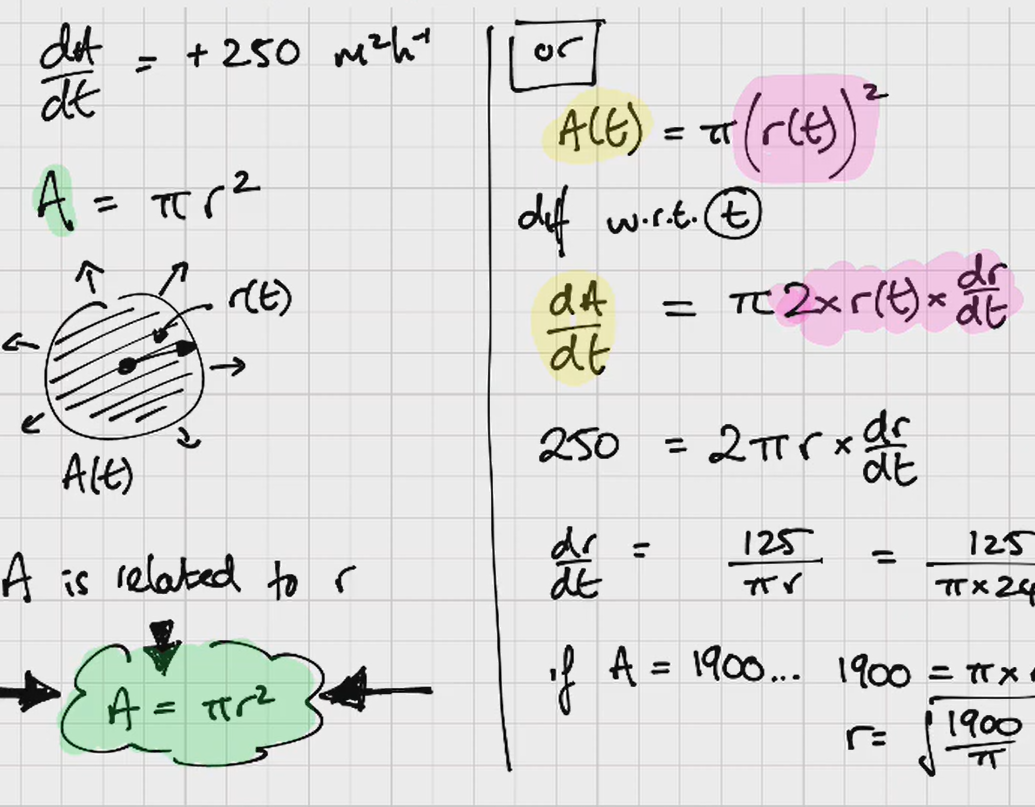 dA/dt = +250 m²h⁻¹
A = πr²
r(t)
A(t)
A is related to r
A = πr²
or
A(t) = π(r(t))²
dif w.r.t. t
dA/dt = π2×r(t)×dr/dt
250 = 2πr×dr/dt
dr/dt = 125/πr = 125/π×24
if A = 1900... 1900 = π×
r = √(1900/π)